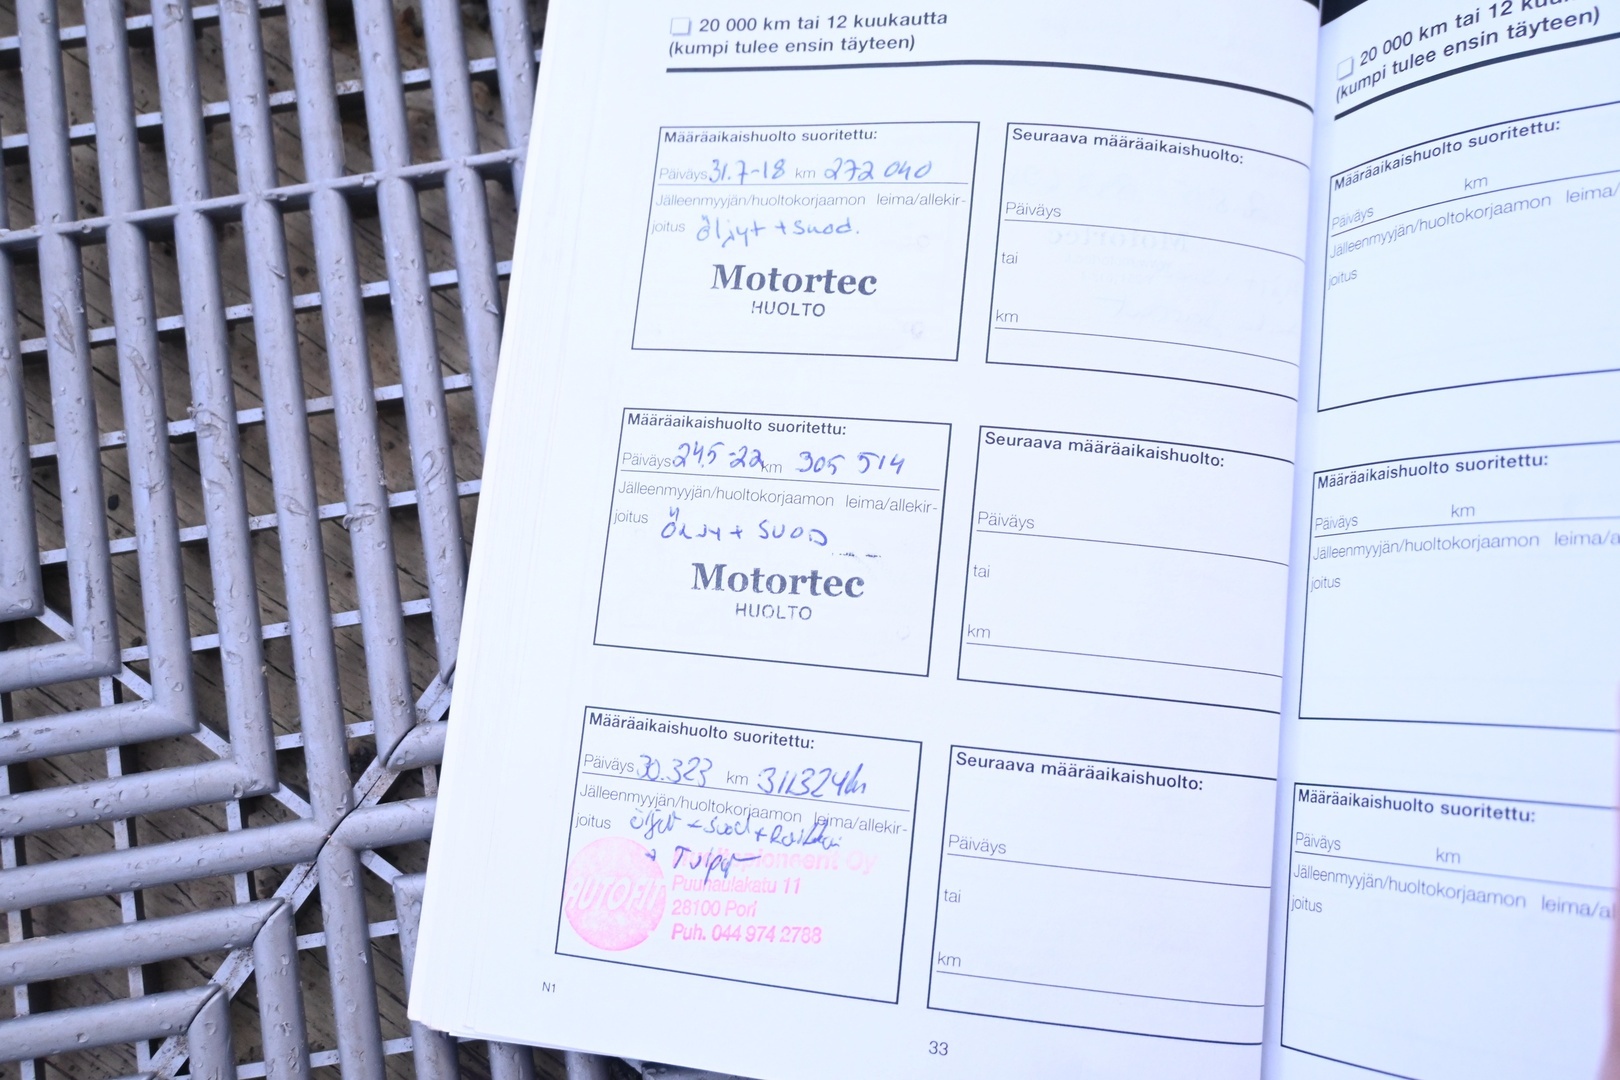 20 000 km tai 12 kuukautta
(kumpi tulee ensin täyteen)
Määräaikaishuolto suoritettu:
Päiväys 31.7-18 km 272 040
Jälleenmyyjän/huoltokorjaamon leima/allekir-
joitus Öljyt + Suod.
Motortec
HUOLTO
Seuraava määräaikaishuolto:
Päiväys
tai
km
Määräaikaishuolto suoritettu:
Päiväys 24.5-22 km 305 514
Jälleenmyyjän/huoltokorjaamon leima/allekir-
joitus Öljy + SUOD
Motortec
HUOLTO
Seuraava määräaikaishuolto:
Päiväys
tai
km
Määräaikaishuolto suoritettu:
Päiväys 30.323 km 311324km
Jälleenmyyjän/huoltokorjaamon leima/allekir-
joitus öljyt + Suod +
+ Tulpat
Oy
AUTOFIT
Puuhaulakatu 11
28100 Pori
Puh. 044 974 2788
Seuraava määräaikaishuolto:
Päiväys
tai
km
N1
33
20 000 km tai 12
(kumpi tulee ensin täyteen)
Määräaikaishuolto suoritettu:
Päiväys km
Jälleenmyyjän/huoltokorjaamon leima/
joitus
Määräaikaishuolto suoritettu:
Päiväys km
Jälleenmyyjän/huoltokorjaamon leima/a
joitus
Määräaikaishuolto suoritettu:
Päiväys km
Jälleenmyyjän/huoltokorjaamon leima/al
joitus